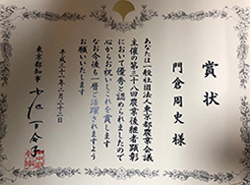 賞状
門倉周史様
あなたは一般社団法人東京都農業会議
主催の第三十八回農業後継者顕彰
において優秀と認められましたので
心からお祝いしこれを賞します
なお今後も一層ご活躍されますよう
お願いいたします
平成三十一年三月二十日
東京都知事
小池百合子